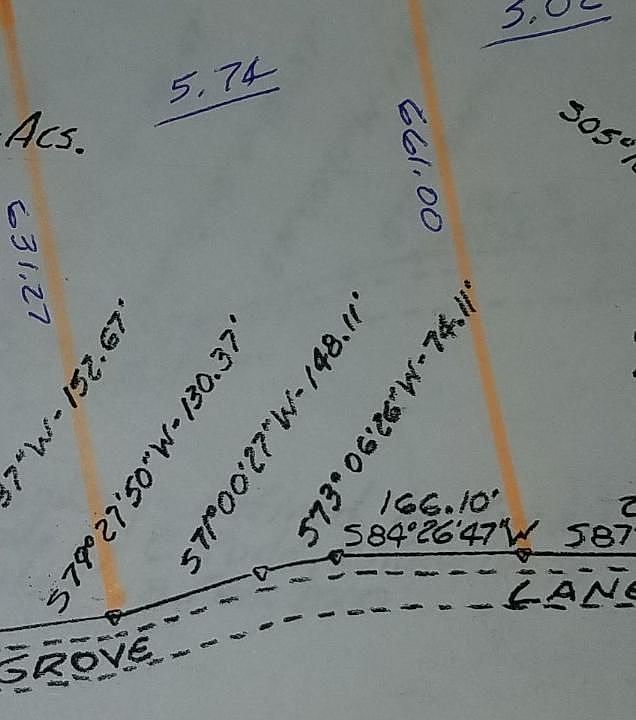 5.74
Acs.
661.00
631.27
37"W-152.67'
S79°27'50"W-130.37'
S71°00'27"W-148.11'
S73°06'26"W-74.11'
166.10'
S84°26'47"W
S87
GROVE
LANE